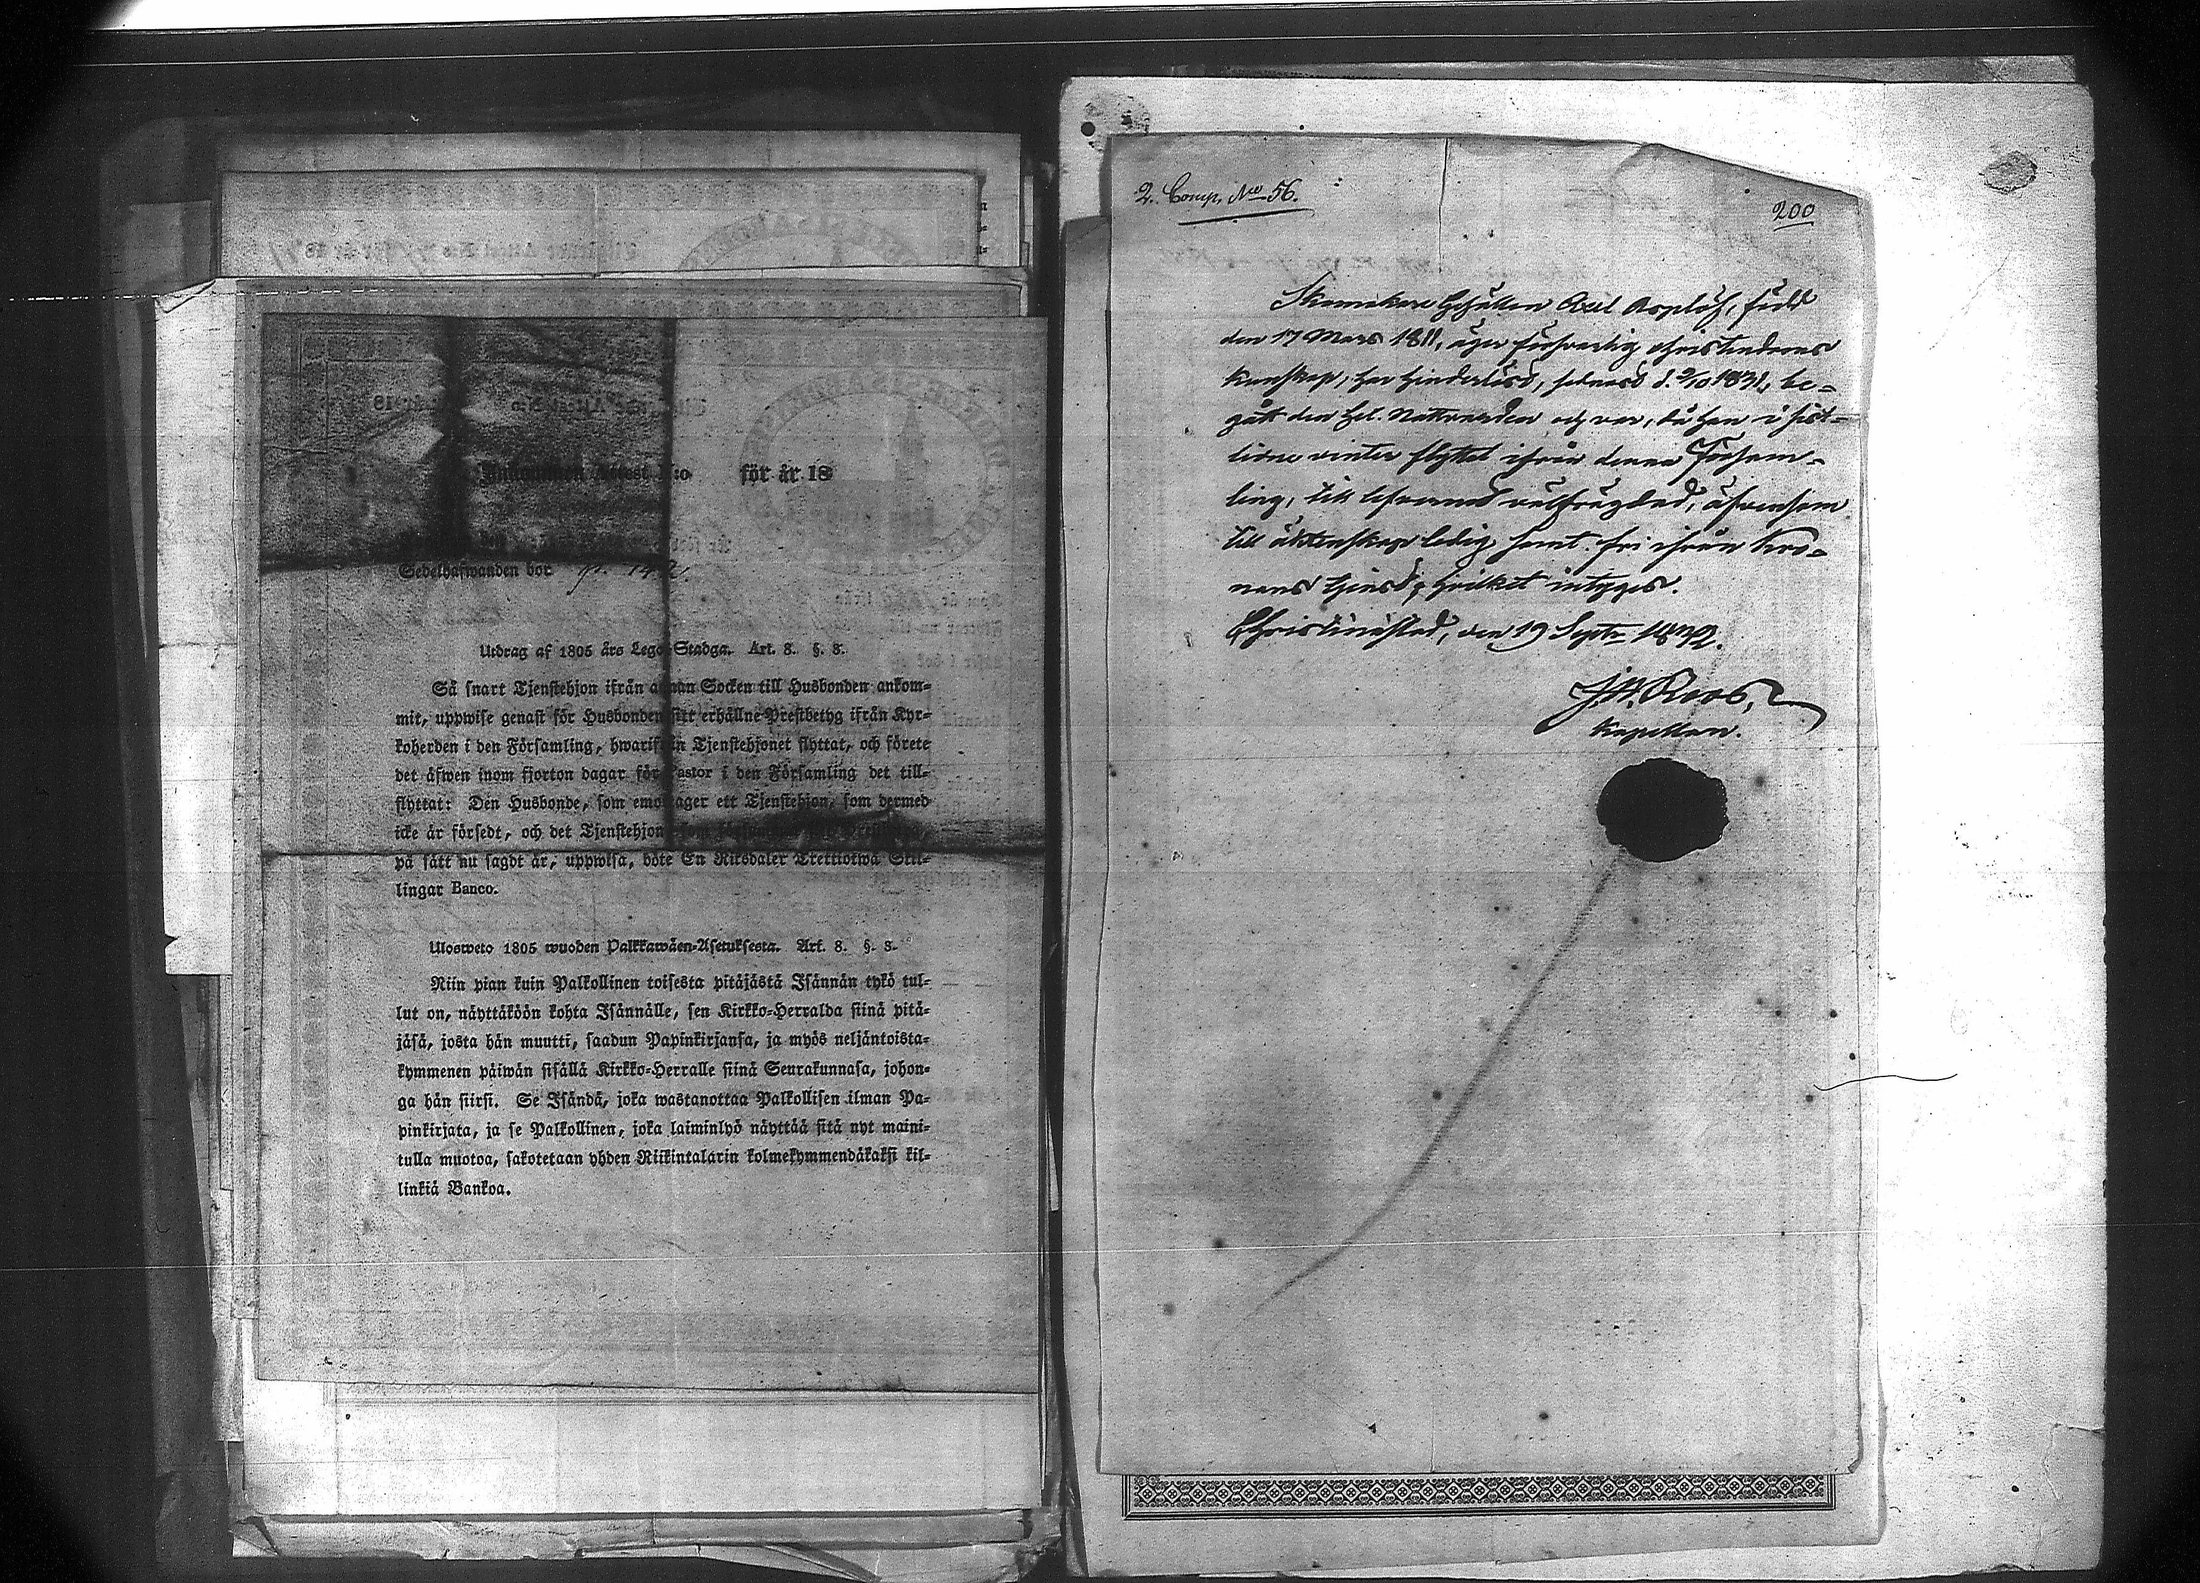 Ankommen Attest No för år 18
Sedelhafwanden bor
Utdrag af 1805 års Lego-Stadga. Art. 8. §. 8.
Så snart Tjenstehjon ifrån annan Socken till Husbonden ankom-
mit, uppwise genast för Husbonden sitt erhållne Prestbetyg ifrån Kyr-
koherden i den Församling, hwarifrån Tjenstehjonet flyttat, och förete
det äfwen inom fjorton dagar för Pastor i den Församling det till-
flyttat: Den Husbonde, som emottager ett Tjenstehjon, som dermed
icke är försedt, och det Tjenstehjon som
på sätt nu sagdt är, uppwisa, böte En Riksdaler Trettiotwå Skil-
lingar Banco.
Ulosweto 1805 wuoden Palkkawäen-Asetuksesta. Art. 8. §. 8.
Niin pian kuin Palkollinen toisesta pitäjästä Isännän tykö tul-
lut on, näyttäköön kohta Isännälle, sen Kirkko-Herralda siinä pitä-
jäsä, josta hän muutti, saadun Papinkirjansa, ja myös neljäntoista-
kymmenen päiwän sisällä Kirkko-Herralle siinä Seurakunnasa, johon-
ga hän siirsi. Se Isändä, joka wastanottaa Palkollisen ilman Pa-
pinkirjata, ja se Palkollinen, joka laiminlyö näyttää sitä nyt maini-
tulla muotoa, sakotetaan yhden Riikintalarin kolmekymmendäkaksi kil-
linkiä Bankoa.
2. Comp. No 56.
200
Skomakare Gesällen Axel Asplöf, född
den 17 Mars 1811, äger försvarlig christendoms
kunskap, har hinderlöst, sednast d. 2/10 1831, be-
gått den hel. Nattvarden och var, då han i sist-
lidne vinter flyttat ifrån denna Försam-
ling, till lefvernet välfrägdad, äfvensom
till äktenskap ledig samt fri ifrån Kro-
nans tjenst; hvilket intygas.
Christinæstad, den 19 Septr 1832.
J. W. Roos,
Kapellan.